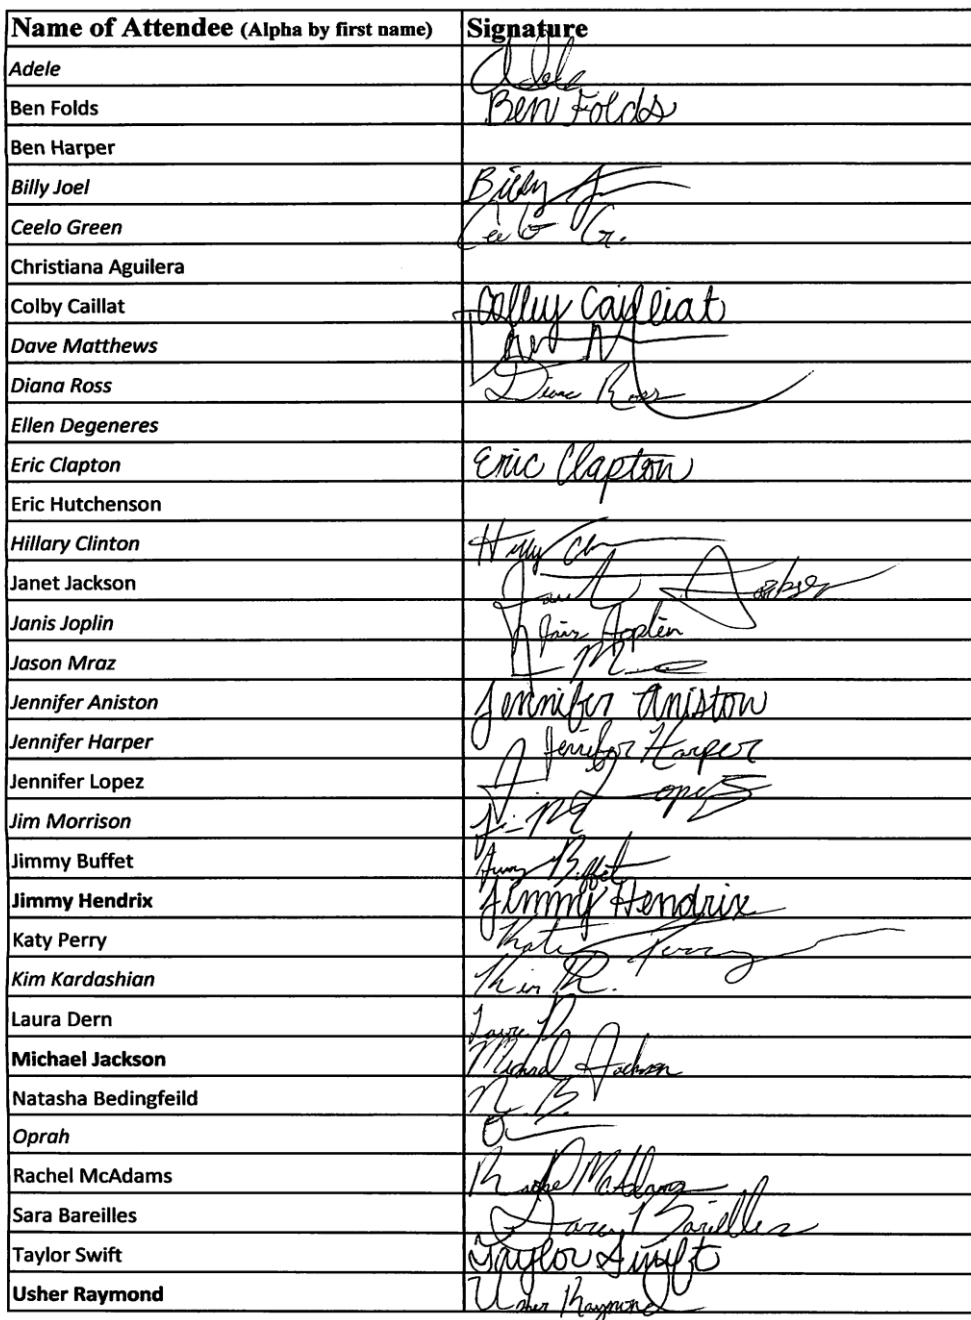 Name of Attendee (Alpha by first name) Signature
Adele Adele
Ben Folds Ben Folds
Ben Harper
Billy Joel Billy J
Ceelo Green Ceelo G.
Christiana Aguilera
Colby Caillat Colby Cailliat
Dave Matthews
Diana Ross Diana Ross
Ellen Degeneres
Eric Clapton Eric Clapton
Eric Hutchenson
Hillary Clinton
Janet Jackson Janet Jackson
Janis Joplin Janis Joplin
Jason Mraz
Jennifer Aniston Jennifer Aniston
Jennifer Harper Jennifer Harper
Jennifer Lopez J Lopez
Jim Morrison
Jimmy Buffet Jimmy Buffet
Jimmy Hendrix Jimmy Hendrix
Katy Perry Katy Perry
Kim Kardashian Kim K.
Laura Dern Laura D
Michael Jackson Michael Jackson
Natasha Bedingfeild N. B.
Oprah O
Rachel McAdams Rachel McAdams
Sara Bareilles Sara Barielles
Taylor Swift Taylor Swift
Usher Raymond Usher Raymond